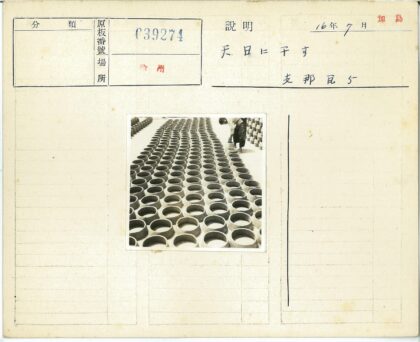 分類
原板番號
039274
場所
説明
16年7月
加島
天日に干す
支那瓦 5